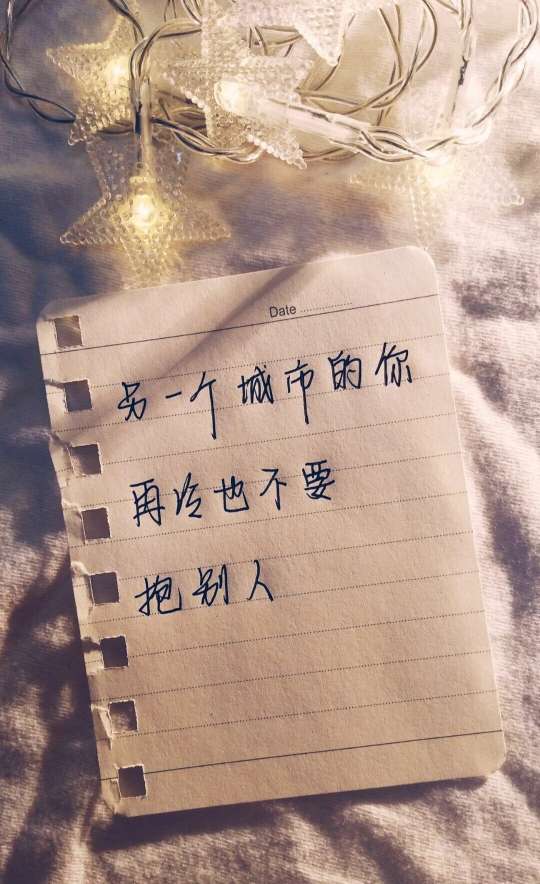 Date
另一个城市的你
再冷也不要
抱别人